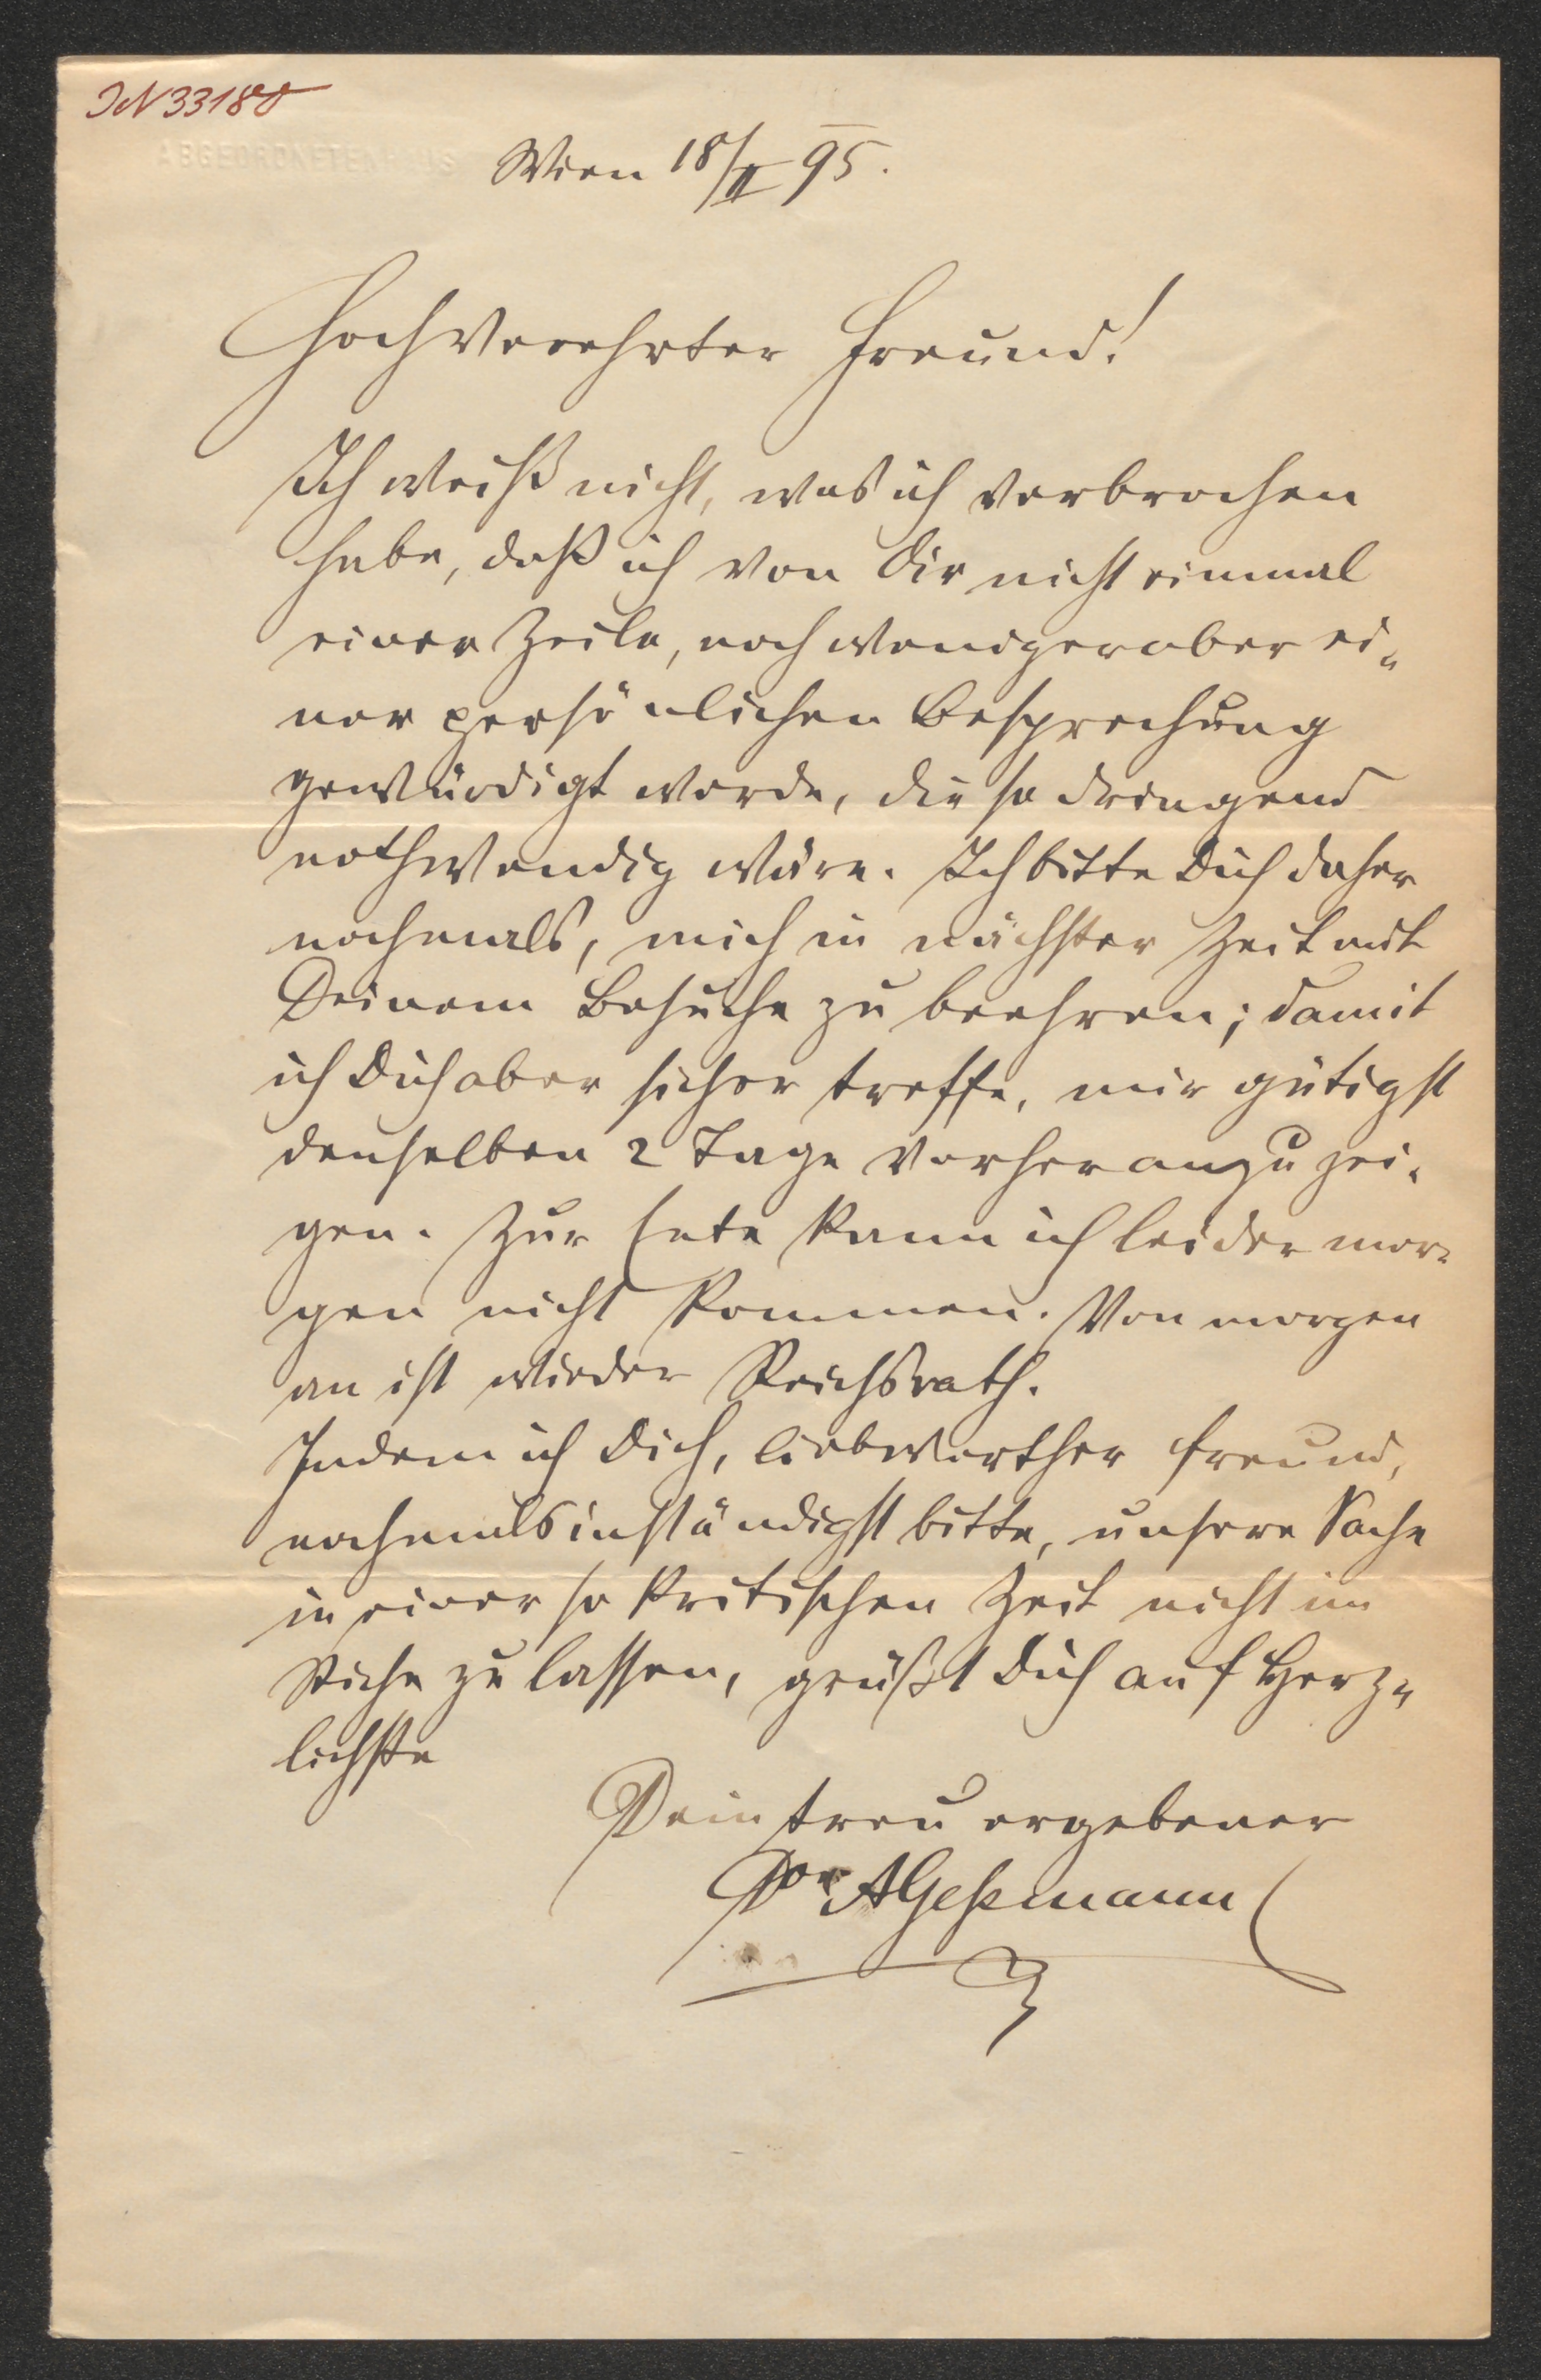 IN 33180
ABGEORDNETENHAUS
Wien 18/II 95.
Hochverehrter Freund!
Ich weiß nicht, was ich verbrochen
habe, daß ich von Dir nicht einmal
einer Zeile, noch weniger aber ei=
ner persönlichen Besprechung
gewürdigt werde, die so dringend
nothwendig wäre. Ich bitte Dich daher
nochmals, mich in nächster Zeit mit
Deinem Besuche zu beehren; damit
ich Dich aber sicher treffe, mir gütigst
denselben 2 Tage vorher anzuzei=
gen. Zur kann ich leider mor=
gen nicht kommen. Von morgen
an ist wieder Reichsrath.
Indem ich Dich, liebwerther Freund,
nochmals inständigst bitte, unsere Sache
in einer so kritischen Zeit nicht im
Stiche zu lassen, grüßt Dich auf Herz=
lichste
Dein treu ergebener
Dor AGeßmann